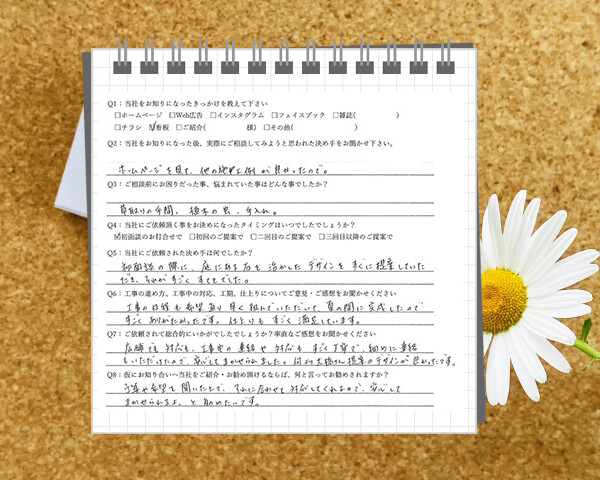 Q1：当社をお知りになったきっかけを教えて下さい
□ホームページ □Web広告 □インスタグラム □フェイスブック □雑誌( )
□チラシ ☑看板 □ご紹介( 様) □その他( )
Q2：当社をお知りになった後、実際にご相談してみようと思われた決め手をお聞かせ下さい。
ホームページを見て、他の施工例が良かったので。
Q3：ご相談前にお困りだった事、悩まれていた事はどんな事でしたか？
草取りの手間、植木の虫、手入れ。
Q4：当社にご依頼頂く事をお決めになったタイミングはいつでしたでしょうか？
☑初面談のお打合せで □初回のご提案で □二回目のご提案で □三回目以降のご提案で
Q5：当社にご依頼された決め手は何でしたか？
初面談の際に、庭にある石を活かしたデザインをすぐに提案していた
だき、それがすごくすてきでした。
Q6：工事の進め方、工事中の対応、工期、仕上りについてご意見・ご感想をお聞かせください
工事の日程も希望通り早く組んでいただいて、夏の間に完成したので
すごくありがたかったです。仕上りもすごく満足しています。
Q7：ご依頼されて総合的にいかがでしたでしょうか？率直なご感想をお聞かせください
店舗でも対応も、工事中の連絡や対応もすごく丁寧で、細めに連絡
もいただけたので、安心してまかせられました。何より大橋さん提案のデザインが良かったです。
Q8：仮にお知り合いへ当社をご紹介・お勧め頂けるならば、何と言ってお勧めされますか？
予算や希望を聞いた上で、それに合わせて対応してくれるので、安心して
まかせられるよ、と勧めたいです。